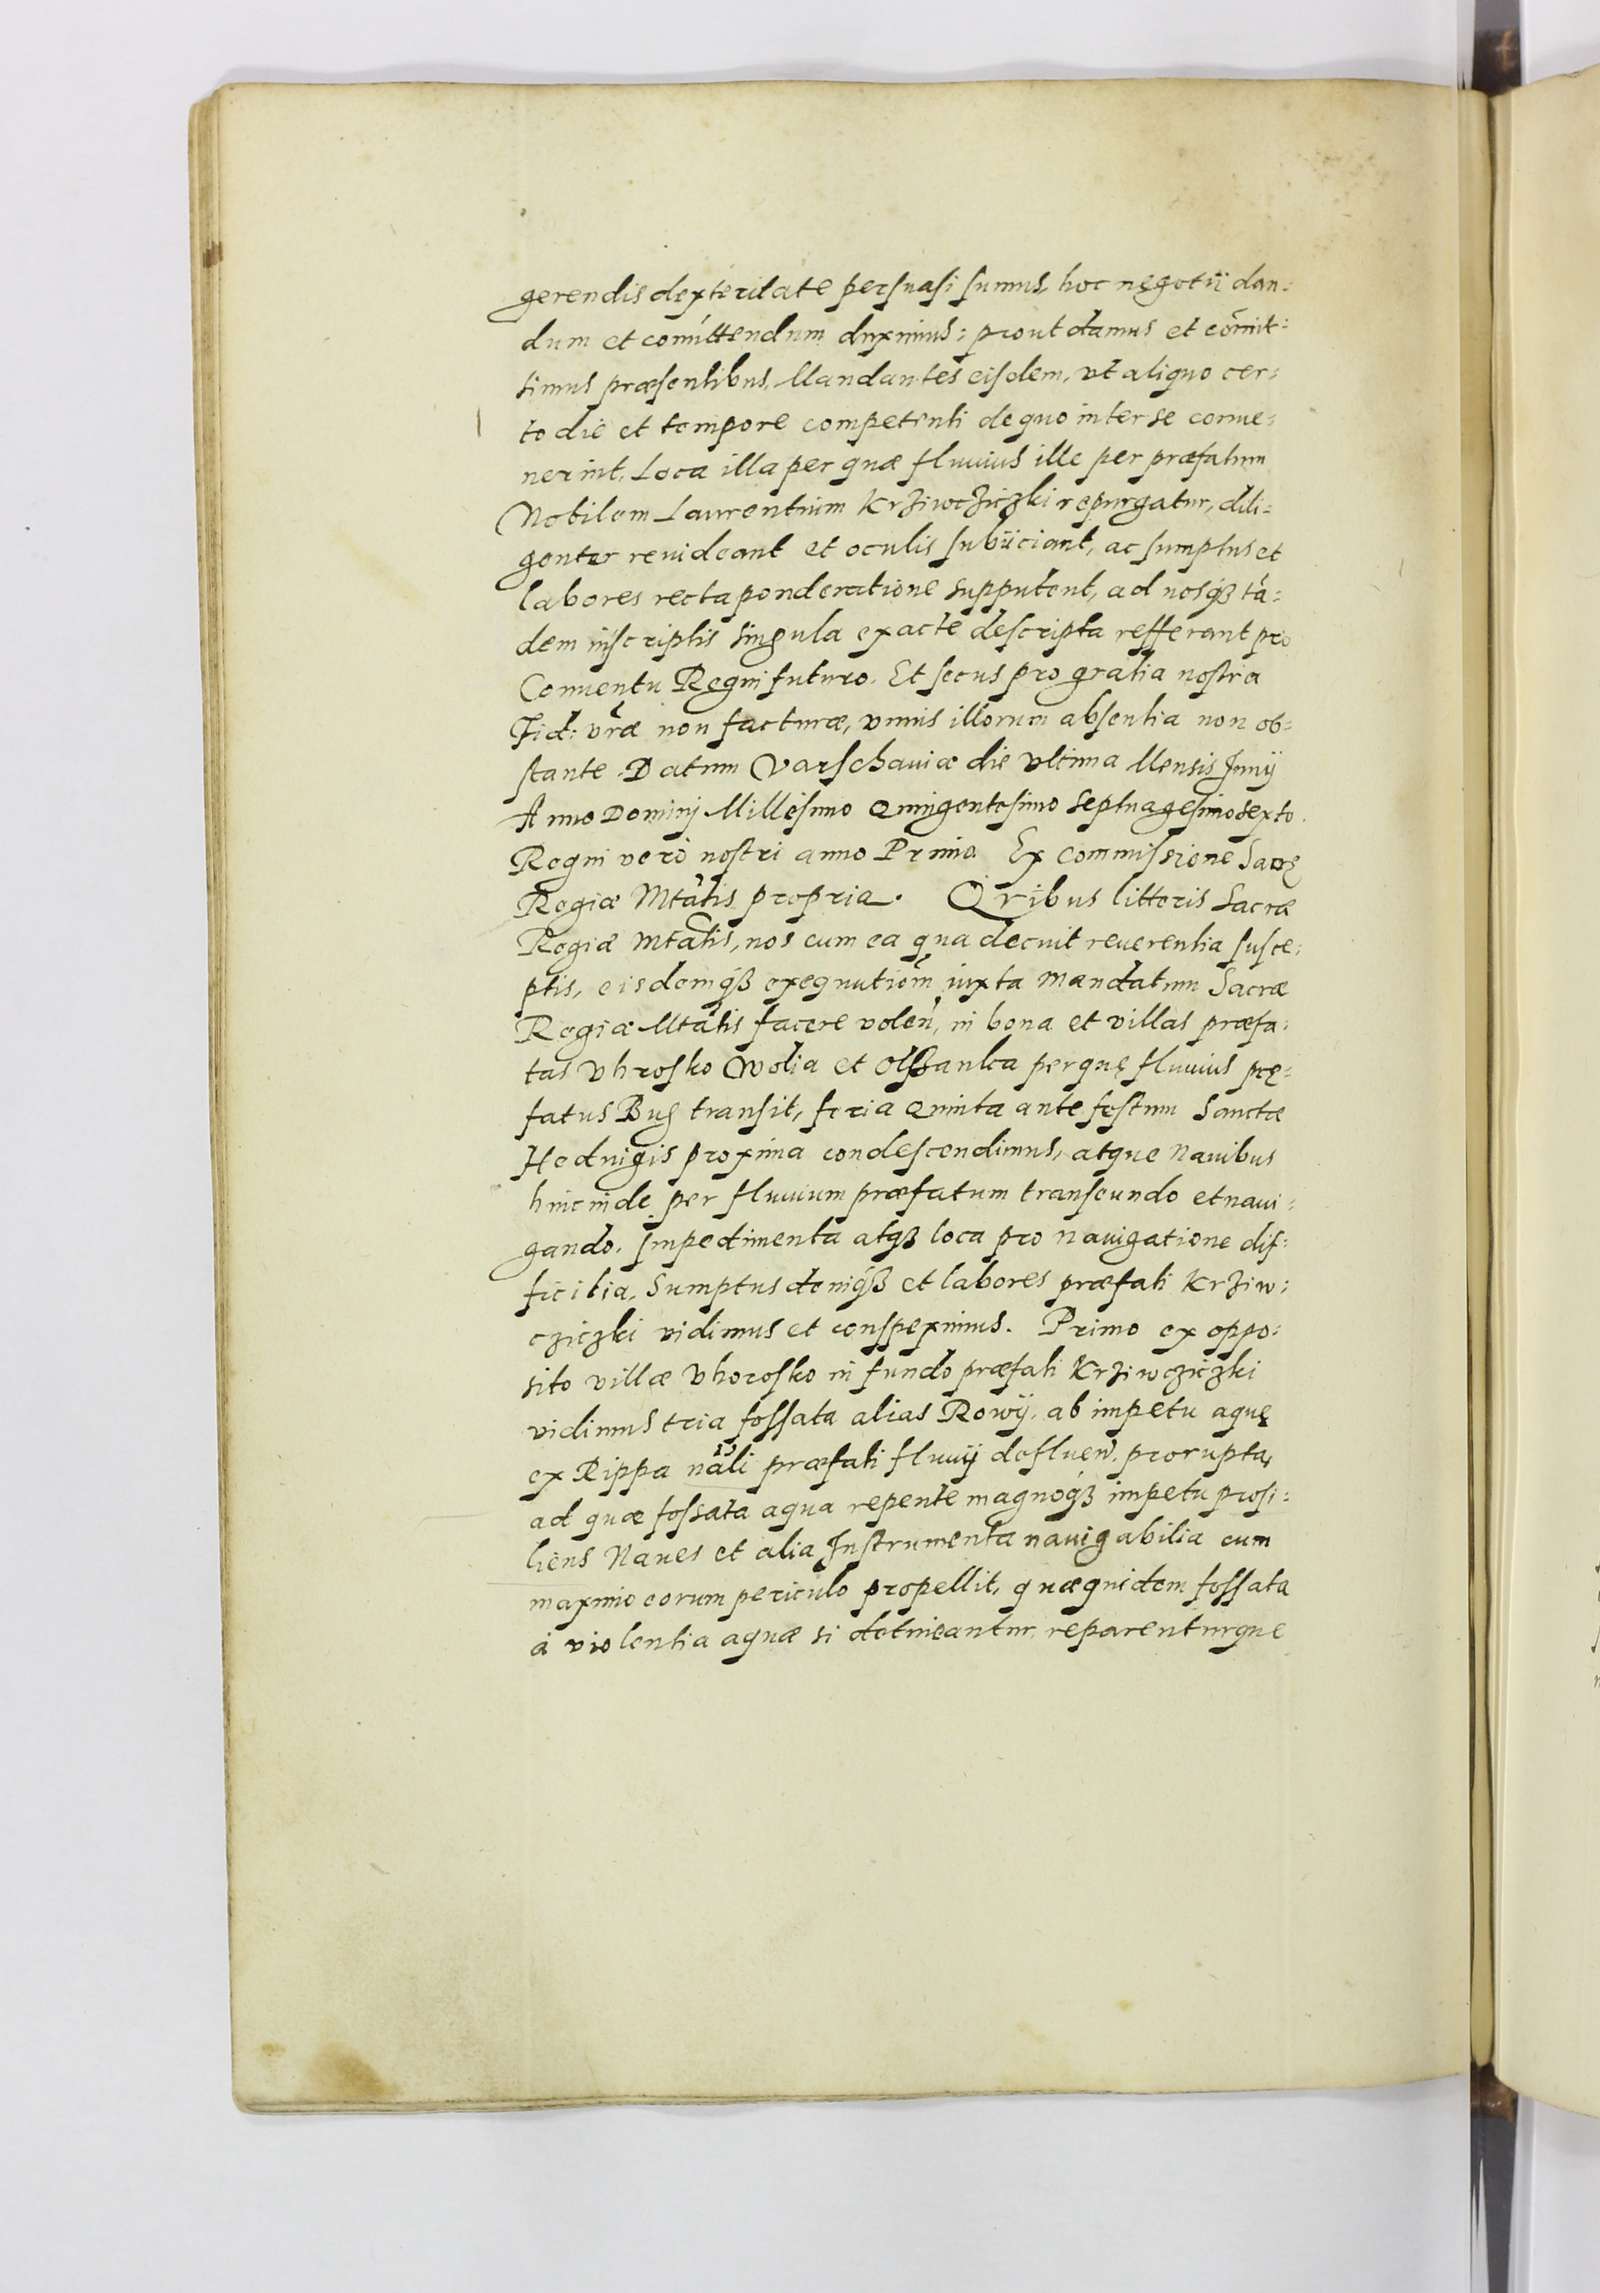 gerendis dexteritate persuasi sumus, hoc negotii dan=
dum et comittendum duximus: prout damus et comit=
timus præsentibus, Mandantes eisdem, vt aliquo cer=
to die et tempore competenti de quo inter se conue=
nerint, Loca illa per quæ fluuius ille per præfatum
Nobilem Laurentium Krziwcziczki repurgatur, dili=
genter reuideant et oculis subiiciant, ac sumptus et
labores recta ponderatione supputent, ad nosqȝ tã=
dem inscriptis singula exacte descripta refferant pro
Conuentu Regni futuro. Et secus pro gratia nostra
Fid: vræ non facturæ, vnius illorum absentia non ob=
stante. Datum Varschauiæ die vltima Mensis Junij
Anno Dominj Millesimo Quingentesimo Septuagesimo sexto.
Regni vero nostri anno Primo Ex Commissione Sacrę
Regiæ Mtãtis propria. Qribus litteris Sacræ
Regiæ Mtãtis, nos cum ea qua decuit reuerentia susce=
ptis, eisdemqȝ exequutiom̃ iuxta Mandatum Sacræ
Regiæ Mtãtis facere voleñ, in bona et villas præfa=
tas Vhrosko Wolia et Olssanka per quę fluuius prę=
fatus Bug transit, feria Quinta ante festum Sanctæ
Heduigis proxima condescendimus, atque Nauibus
hinc inde per fluuium præfatum transeundo et naui=
gando. Impedimenta atqȝ loca pro nauigatione dif=
ficilia, Sumptus deniqȝ et labores præfati Krziw=
cziczki vidimus et conspeximus. Primo ex oppo=
sito villæ Vhorosko in fundo præfati Krziwcziczki
vidimus tria fossata alias Rowij, ab impetu aquę
ex Rippa nãli præfati fluuij defluen̄. prorupta,
ad quæ fossata aqua repente magnoqȝ impetu prosi=
liens Naues et alia Instrumenta nauigabilia cum
maximo eorum periculo propellit, quæquidem fossata
à violentia aquæ si detineantur, reparenturque